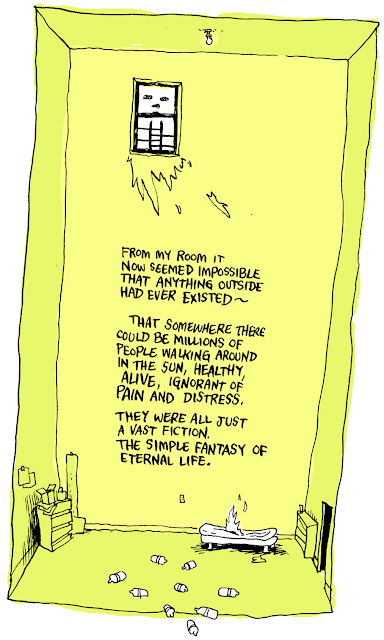 FROM MY ROOM IT
NOW SEEMED IMPOSSIBLE
THAT ANYTHING OUTSIDE
HAD EVER EXISTED~
THAT SOMEWHERE THERE
COULD BE MILLIONS OF
PEOPLE WALKING AROUND
IN THE SUN, HEALTHY,
ALIVE, IGNORANT OF
PAIN AND DISTRESS.
THEY WERE ALL JUST
A VAST FICTION.
THE SIMPLE FANTASY OF
ETERNAL LIFE.